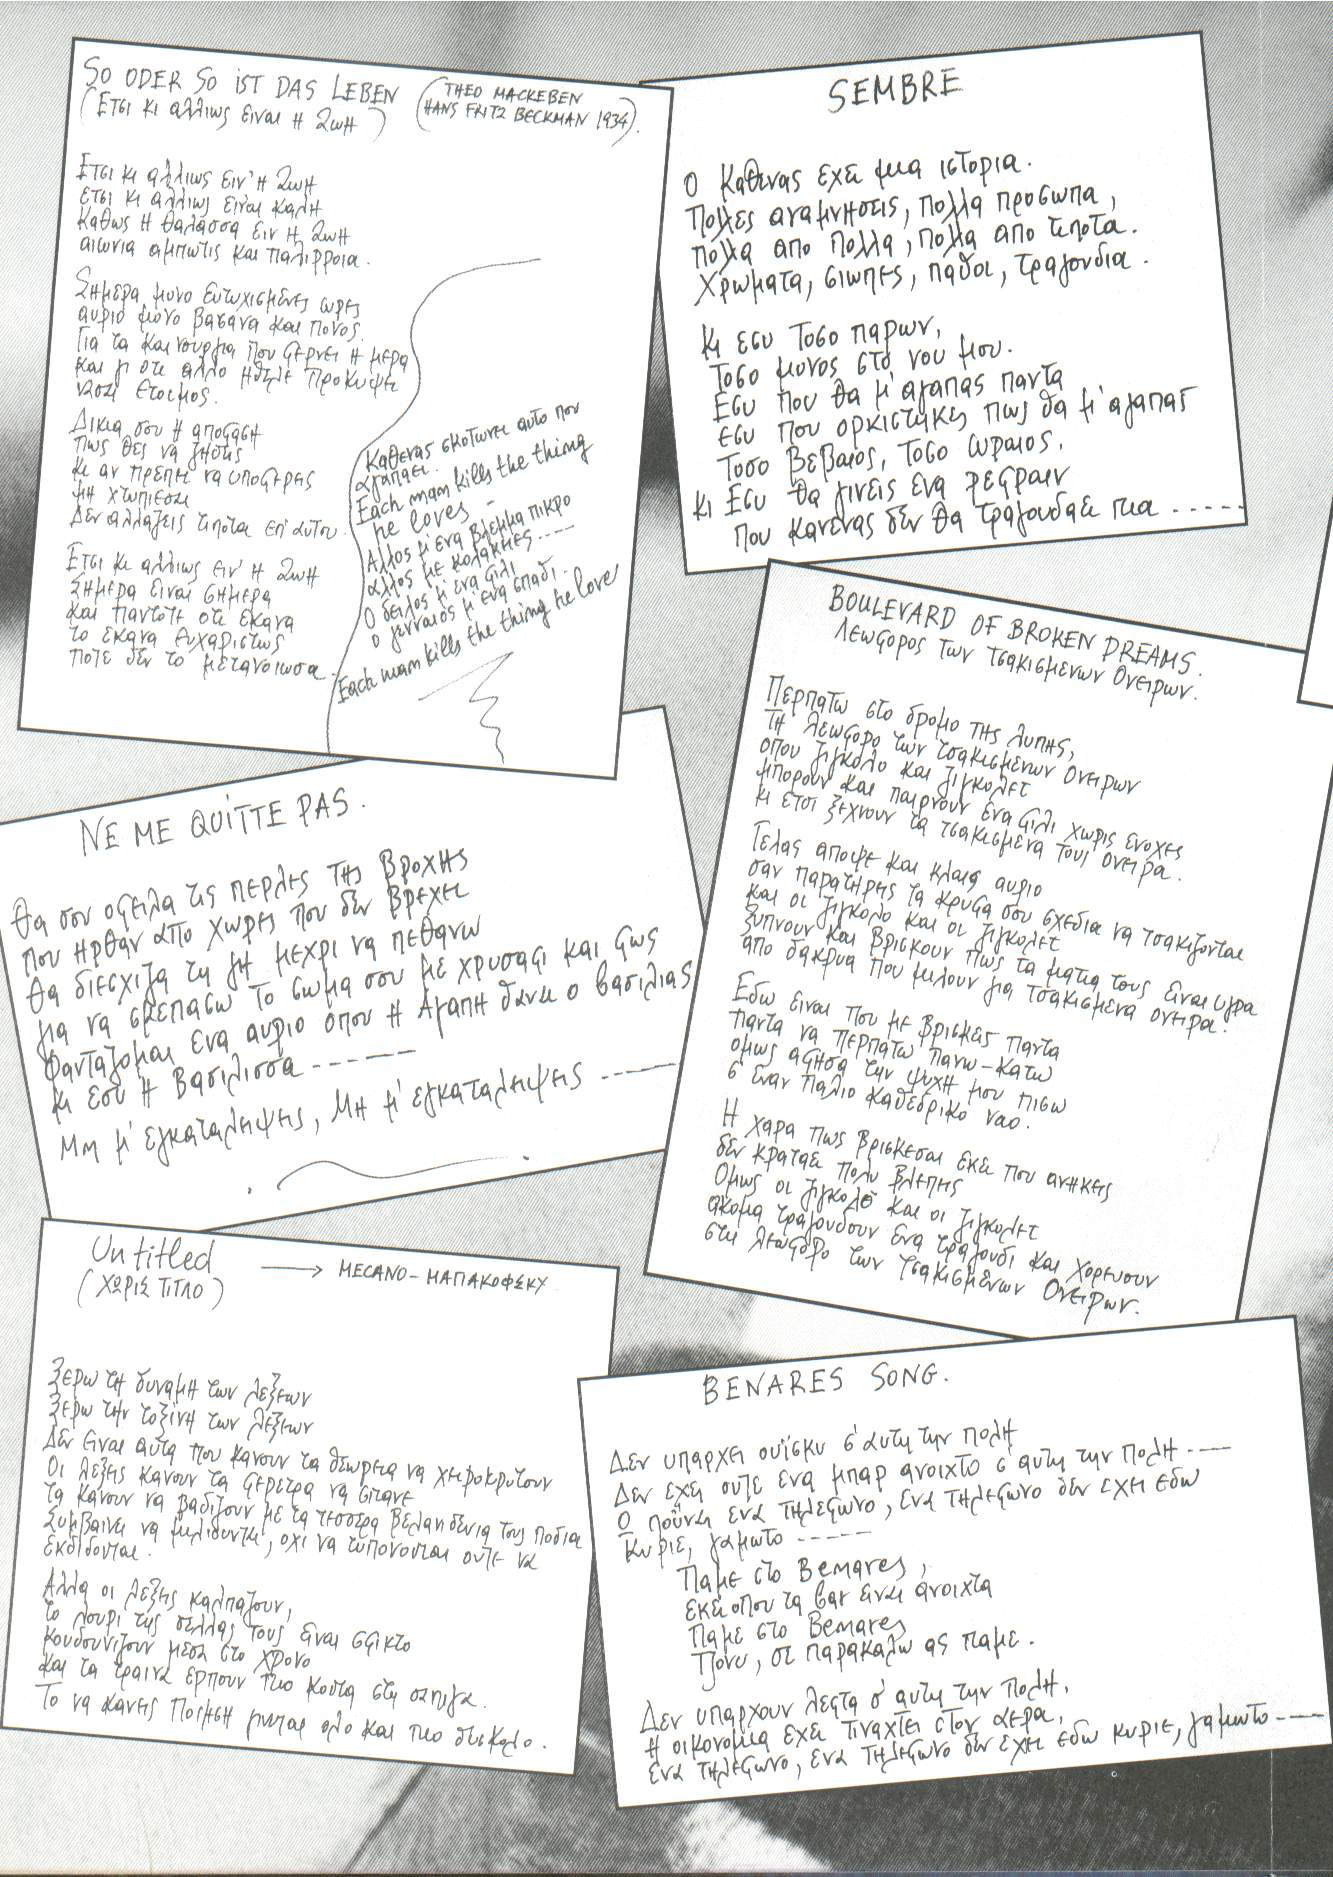 SO ODER SO IST DAS LEBEN (THEO MACKEBEN
HANS FRITZ BECKMAN 1934).
(Ετσι κι αλλιως ειναι η ζωη)
Ετσι κι αλλιως ειν' η ζωη
ετσι κι αλλιως ειναι καλη
καθως η θαλασσα ειν η ζωη
αιωνια αμπωτις και παλιρροια.
Σημερα μονο ευτυχισμενες ωρες
αυριο μονο βασανα και πονος.
Για τα καινουργια που φερνει η μερα
και γι οτι αλλο ηθελε προκυψει
νασαι ετοιμος.
Δικια σου η αποφαση
πως θες να ζησεις
κι αν πρεπει να υποφερεις
μη χτυπιεσαι
Δεν αλλαζεις τιποτα επ' αυτου.
Ετσι κι αλλιως ειν' η ζωη
Σημερα ειναι σημερα
και παντοτε οτι εκανα
το εκανα ευχαριστως
ποτε δεν το μετανοιωσα.
Καθενας σκοτωνει αυτο που
αγαπαει.
Each man kills the thing
he loves -
Αλλος μ' ενα βλεμμα πικρο
αλλος με κολακιες -----
Ο δειλος μ' ενα φιλι
ο γενναιος μ' ενα σπαθι.
Each man kills the thing he loves
SEMBRE
Ο καθενας εχει μια ιστορια.
Πολλες αναμνησεις, πολλα προσωπα,
πολλα απο πολλα, πολλα απο τιποτα.
Χρωματα, σιωπες, παθοι, τραγουδια.
Κι εσυ τοσο παρων,
τοσο μονος στο νου μου.
Εσυ που θα μ' αγαπας παντα
εσυ που ορκιστηκες πως θα μ' αγαπας
τοσο βεβαιος, τοσο ωραιος.
Κι Εσυ θα γινεις ενα ρεφραιν
που κανενας δεν θα τραγουδαει πια -----
NE ME QUITTE PAS.
Θα σου οφειλα τις περλες της βροχης
που ηρθαν απο χωρες που δεν βρεχει
θα διεσχιζα τη γη μεχρι να πεθανω
για να σκεπασω το σωμα σου με χρυσαφι και φως
Φανταζομαι ενα αυριο οπου η Αγαπη θαναι ο βασιλιας
κι εσυ η βασιλισσα ------
Μη μ' εγκαταλειψεις, Μη μ' εγκαταλειψεις -----
BOULEVARD OF BROKEN DREAMS.
Λεωφορος των τσακισμενων Ονειρων.
Περπατω στο δρομο της λυπης,
τη λεωφορο των τσακισμενων Ονειρων
οπου ζιγκολο και ζιγκολετ
μπορουν και παιρνουν ενα φιλι χωρις ενοχες
κι ετσι ξεχνουν τα τσακισμενα τους ονειρα.
Γελας αποψε και κλαις αυριο
σαν παρατηρεις τα κρυφα σου σχεδια να τσακιζονται
και οι ζιγκολο και οι ζιγκολετ
ξυπνουν και βρισκουν πως τα ματια τους ειναι υγρα
απο δακρυα που μιλουν για τσακισμενα ονειρα.
Εδω ειναι που με βρισκεις παντα
παντα να περπατω πανω-κατω
ομως αφησα την ψυχη μου πισω
σ' εναν παλιο καθεδρικο ναο.
Η χαρα πως βρισκεσαι εκει που ανηκεις
δεν κραταει πολυ βλεπεις
Ομως οι ζιγκολο και οι ζιγκολετ
ακομα τραγουδουν ενα τραγουδι και χορευουν
στη λεωφορο των τσακισμενων Ονειρων.
Untitled
(ΧΩΡΙΣ ΤΙΤΛΟ)
→ MECANO-ΜΑΓΙΑΚΟΦΣΚΥ
Ξερω τη δυναμη των λεξεων
Ξερω την τοξινη των λεξεων
Δεν ειναι αυτα που κανουν τα θεωρεια να χειροκροτουν
Οι λεξεις κανουν τα φερετρα να σπανε
τα κανουν να βαδιζουν με τα τεσσερα βελανιδενια τους ποδια
Συμβαινει να , οχι να τυπονονται ουτε να
εκδιδονται.
Αλλα οι λεξεις καλπαζουν,
το λουρι της σελλας τους ειναι σφικτο
κουδουνιζουν μεσα στο χρονο
και τα τραινα ερπουν πιο κοντα στη
Το να κανεις Ποιηση γινεται ολο και πιο δυσκολο.
BENARES SONG.
Δεν υπαρχει ουϊσκυ σ' αυτη την πολη
Δεν εχει ουτε ενα μπαρ ανοιχτο σ' αυτη την πολη ----
Ω που'ναι ενα τηλεφωνο, ενα τηλεφωνο δεν εχει εδω
Κυριε, γαμωτο -----
Παμε στο Benares,
εκει οπου τα bar ειναι ανοιχτα
Παμε στο Benares
Τζονυ, σε παρακαλω ας παμε.
Δεν υπαρχουν λεφτα σ' αυτη την πολη.
η οικονομια εχει τιναχτει στον αερα,
ενα τηλεφωνο, ενα τηλεφωνο δεν εχει εδω κυριε, γαμωτο ----